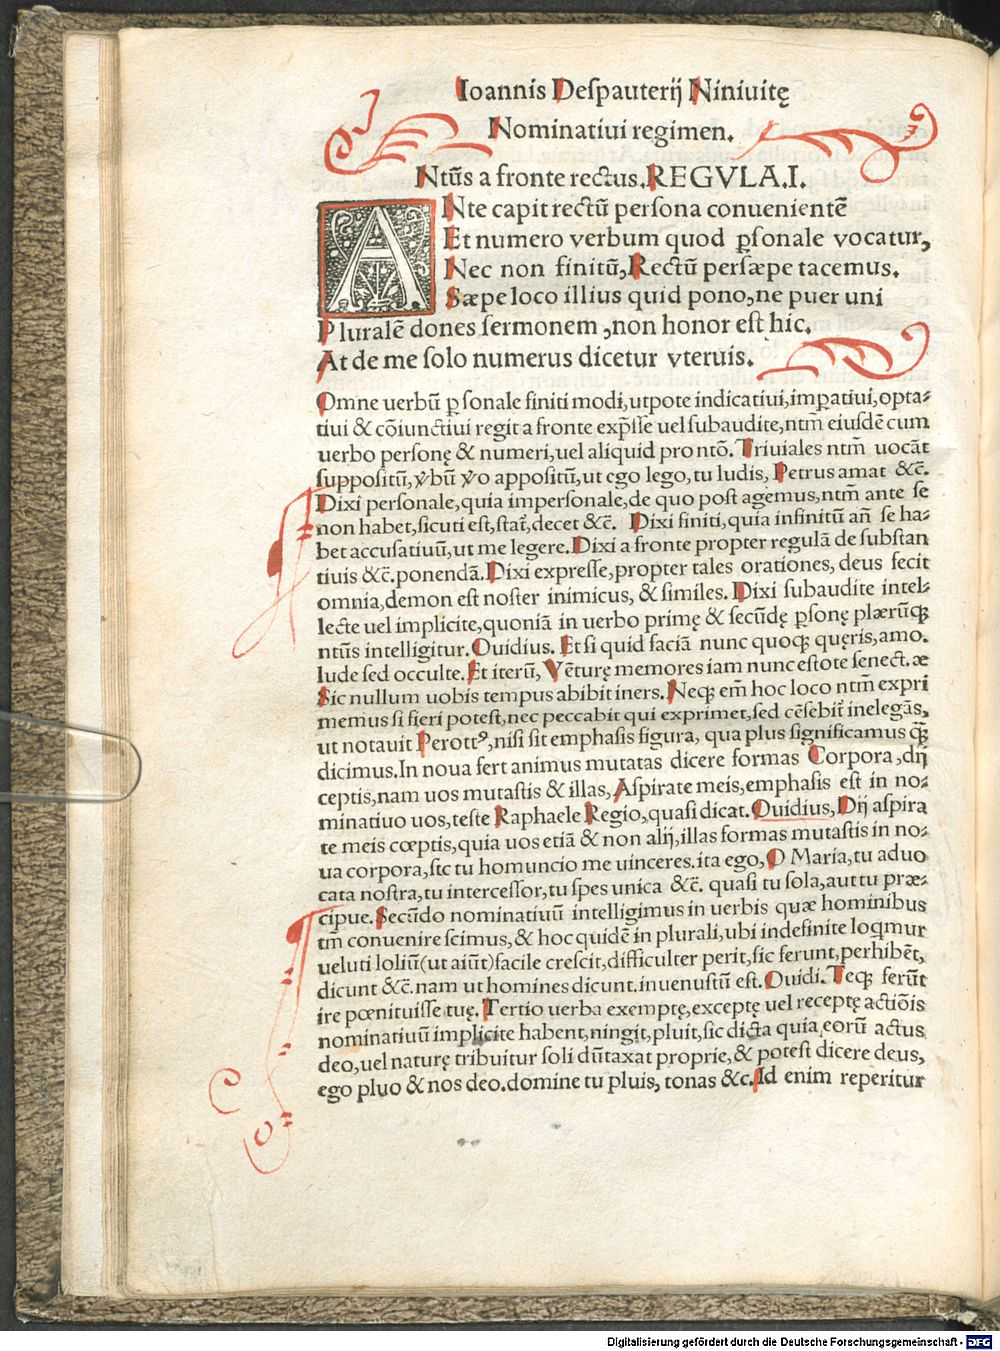 Ioannis Despauterij Niniuitę
Nominatiui regimen.
Ntũs a fronte rectus. REGVLA. I.
ANte capit rectũ persona conuenientẽ
Et numero verbum quod p̱sonale vocatur,
Nec non finitũ, Rectũ persæpe tacemus.
Sæpe loco illius quid pono, ne puer uni
Pluralẽ dones sermonem, non honor est hic.
At de me solo numerus dicetur vteruis.
Omne uerbũ p̱sonale finiti modi, utpote indicatiui, imp̱atiui, opta-
tiui & cõiunctiui regit a fronte exp̃sse uel subaudite, ntm̃ eiusdẽ cum
uerbo personę & numeri, uel aliquid pro ntõ. Triuiales ntm̃ uocãt
suppositũ, ṽbũ ṽo appositũ, ut ego lego, tu ludis, Petrus amat &c̃.
Dixi personale, quia impersonale, de quo post agemus, ntm̃ ante se
non habet, sicuti est, stat̃, decet &c̃. Dixi finiti, quia infinitũ añ se ha-
bet accusatiuũ, ut me legere. Dixi a fronte propter regulã de substan
tiuis &c̃. ponendã. Dixi expresse, propter tales orationes, deus fecit
omnia, demon est noster inimicus, & similes. Dixi subaudite intel-
lecte uel implicite, quoniã in uerbo primę & secũdę p̱sonę plærũqꝫ
ntũs intelligitur. Ouidius. Et si quid faciã nunc quoqꝫ quęris, amo.
lude sed occulte. Et iterũ, Vẽturę memores iam nunc estote senect. æ
Sic nullum uobis tempus abibit iners. Neqꝫ em̃ hoc loco ntm̃ expri
memus si fieri potest, nec peccabit qui exprimet, sed cẽsebit̃ inelegãs,
ut notauit Perottꝰ, nisi sit emphasis figura, qua plus significamus qꝫ̃
dicimus. In noua fert animus mutatas dicere formas Corpora, dij
ceptis, nam uos mutastis & illas, Aspirate meis, emphasis est in no-
minatiuo uos, teste Raphaele Regio, quasi dicat. Ouidius, Dij aspira
te meis cœptis, quia uos etiã & non alij, illas formas mutastis in no-
ua corpora, sic tu homuncio me uinceres. ita ego, O Maria, tu aduo
cata nostra, tu intercessor, tu spes unica &c̃. quasi tu sola, aut tu præ-
cipue. Secũdo nominatiuũ intelligimus in uerbis quæ hominibus
tm̃ conuenire scimus, & hoc quidẽ in plurali, ubi indefinite loqm̃ur
ueluti loliũ (ut aiũt) facile crescit, difficulter perit, sic ferunt, perhibẽt,
dicunt &c̃. nam ut homines dicunt. inuenustũ est. Ouidi. Teqꝫ ferũt
ire pœnituisse tuę. Tertio uerba exemptę, exceptę uel receptę actiõis
nominatiuũ implicite habent, ningit, pluit, sic dicta quia eorũ actus
deo, uel naturę tribuitur soli dũtaxat proprie, & potest dicere deus,
ego pluo & nos deo. domine tu pluis, tonas &c. Id enim reperitur
Digitalisierung gefördert durch die Deutsche Forschungsgemeinschaft - DFG